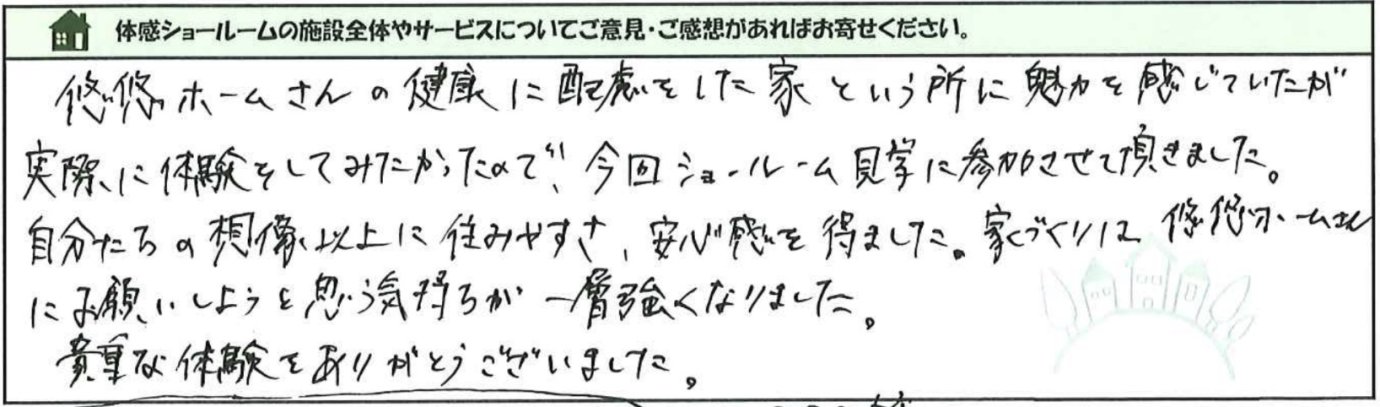 体感ショールームの施設全体やサービスについてご意見・ご感想があればお寄せください。
悠悠ホームさんの健康に配慮をした家という所に魅力を感じていたが
実際に体験をしてみたかったので、今回ショールーム見学に参加させて頂きました。
自分たちの想像以上に住みやすさ、安心感を得ました。家づくりは悠悠ホームさん
にお願いしようと思う気持ちが一層強くなりました。
貴重な体験をありがとうございました。